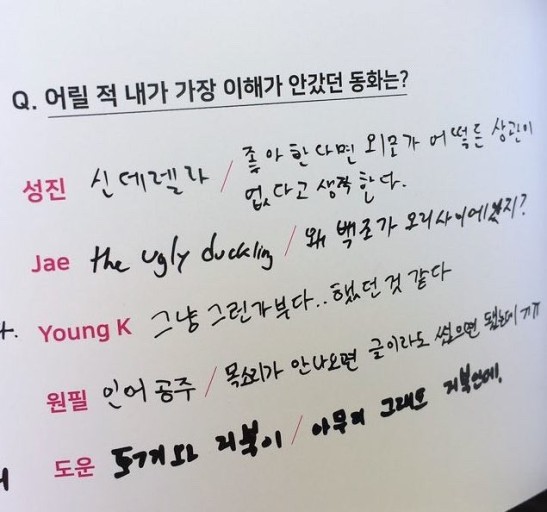 Q. 어릴 적 내가 가장 이해가 안갔던 동화는?
성진 신데렐라 / 좋아한다면 외모가 어떻든 상관이
없다고 생각한다.
Jae the ugly duckling / 왜 백조가 오리사이에있지?
Young K 그냥 그런가부다.. 했던 것 같다
원필 인어공주 / 목소리가 안나오면 글이라도 썼으면 됐는데
도운 토끼와 거북이 / 아무리 그래도 거북인데.